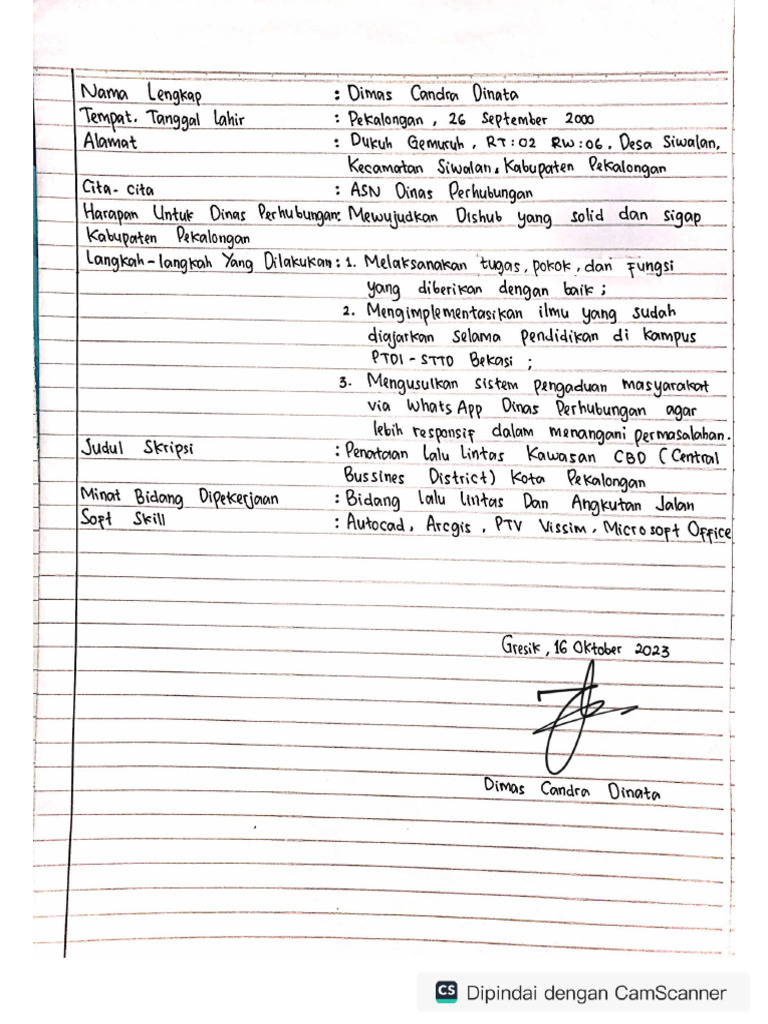 Nama Lengkap : Dimas Candra Dinata
Tempat, Tanggal Lahir : Pekalongan, 26 September 2000
Alamat : Dukuh Gemuruh, RT:02 RW:06, Desa Siwalan,
Kecamatan Siwalan, Kabupaten Pekalongan
Cita-cita : ASN Dinas Perhubungan
Harapan Untuk Dinas Perhubungan : Mewujudkan Dishub yang solid dan sigap
Kabupaten Pekalongan
Langkah-langkah Yang Dilakukan : 1. Melaksanakan tugas, pokok, dan fungsi
yang diberikan dengan baik;
2. Mengimplementasikan ilmu yang sudah
diajarkan selama pendidikan di kampus
PTDI-STTD Bekasi;
3. Mengusulkan sistem pengaduan masyarakat
via WhatsApp Dinas Perhubungan agar
lebih responsif dalam menangani permasalahan.
Judul Skripsi : Penataan Lalu Lintas Kawasan CBD (Central
Bussines District) Kota Pekalongan
Minat Bidang Dipekerjaan : Bidang Lalu Lintas Dan Angkutan Jalan
Soft Skill : Autocad, Arcgis, PTV Vissim, Microsoft Office
Gresik, 16 Oktober 2023
Dimas Candra Dinata
CS Dipindai dengan CamScanner